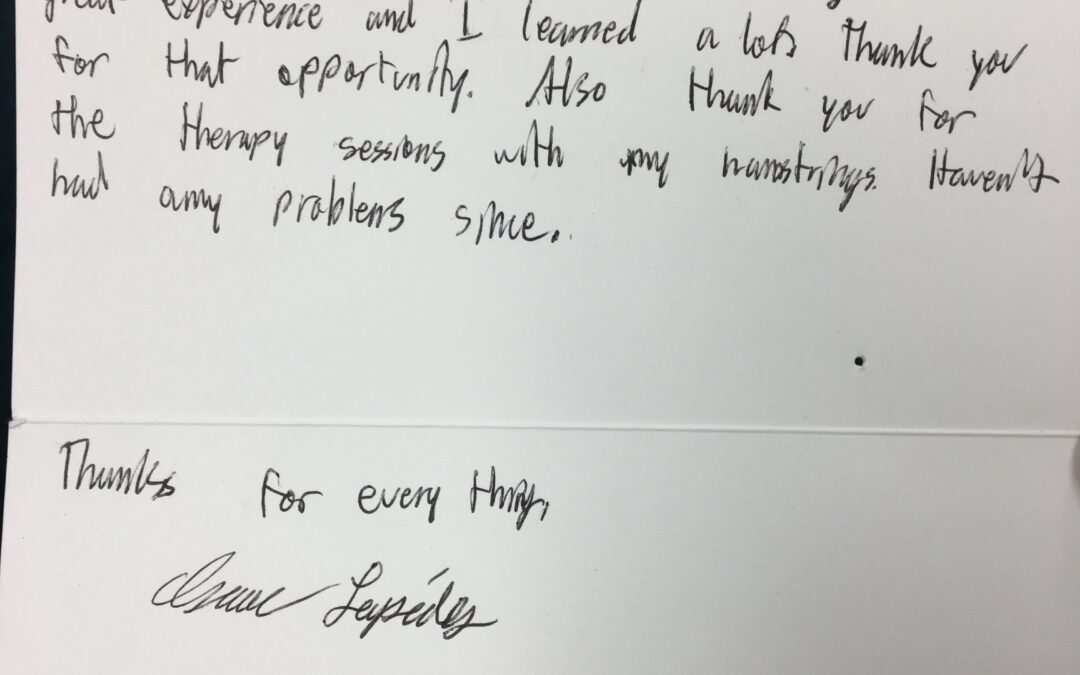 great experience and I learned a lot. Thank you
for that opportunity. Also thank you for
the therapy sessions with my hamstrings. Haven't
had any problems since.
Thanks for every thing,
Isaac